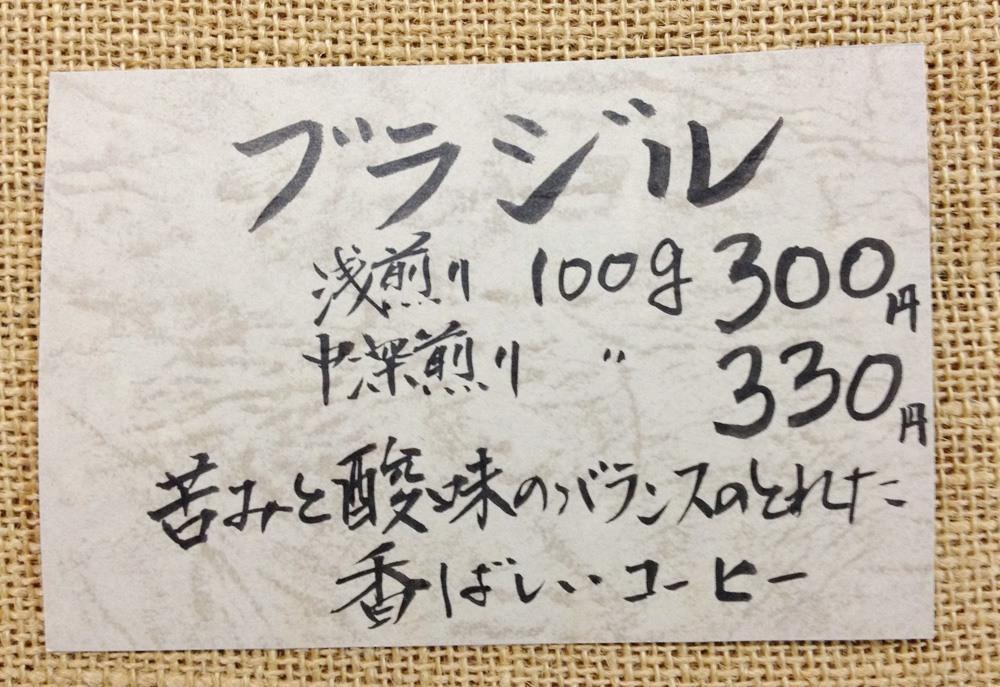 ブラジル
浅煎り 100g 300円
中深煎り 〃 330円
苦みと酸味のバランスのとれた
香ばしいコーヒー